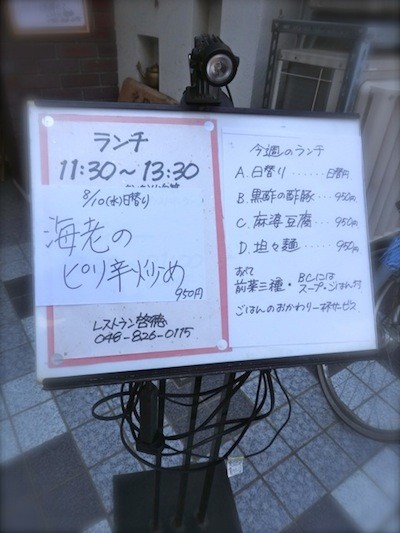 ランチ
11:30～13:30
8/10(水)日替り
海老の
ピリ辛炒め
950円
レストラン啓穂
048-826-0115
今週のランチ
A. 日替り……日替円
B. 黒酢の酢豚…950円
C. 麻婆豆腐…950円
D. 坦々麺…950円
前菜三種・BCには
スープ・ごはん付
ごはんのおかわり一杯サービス